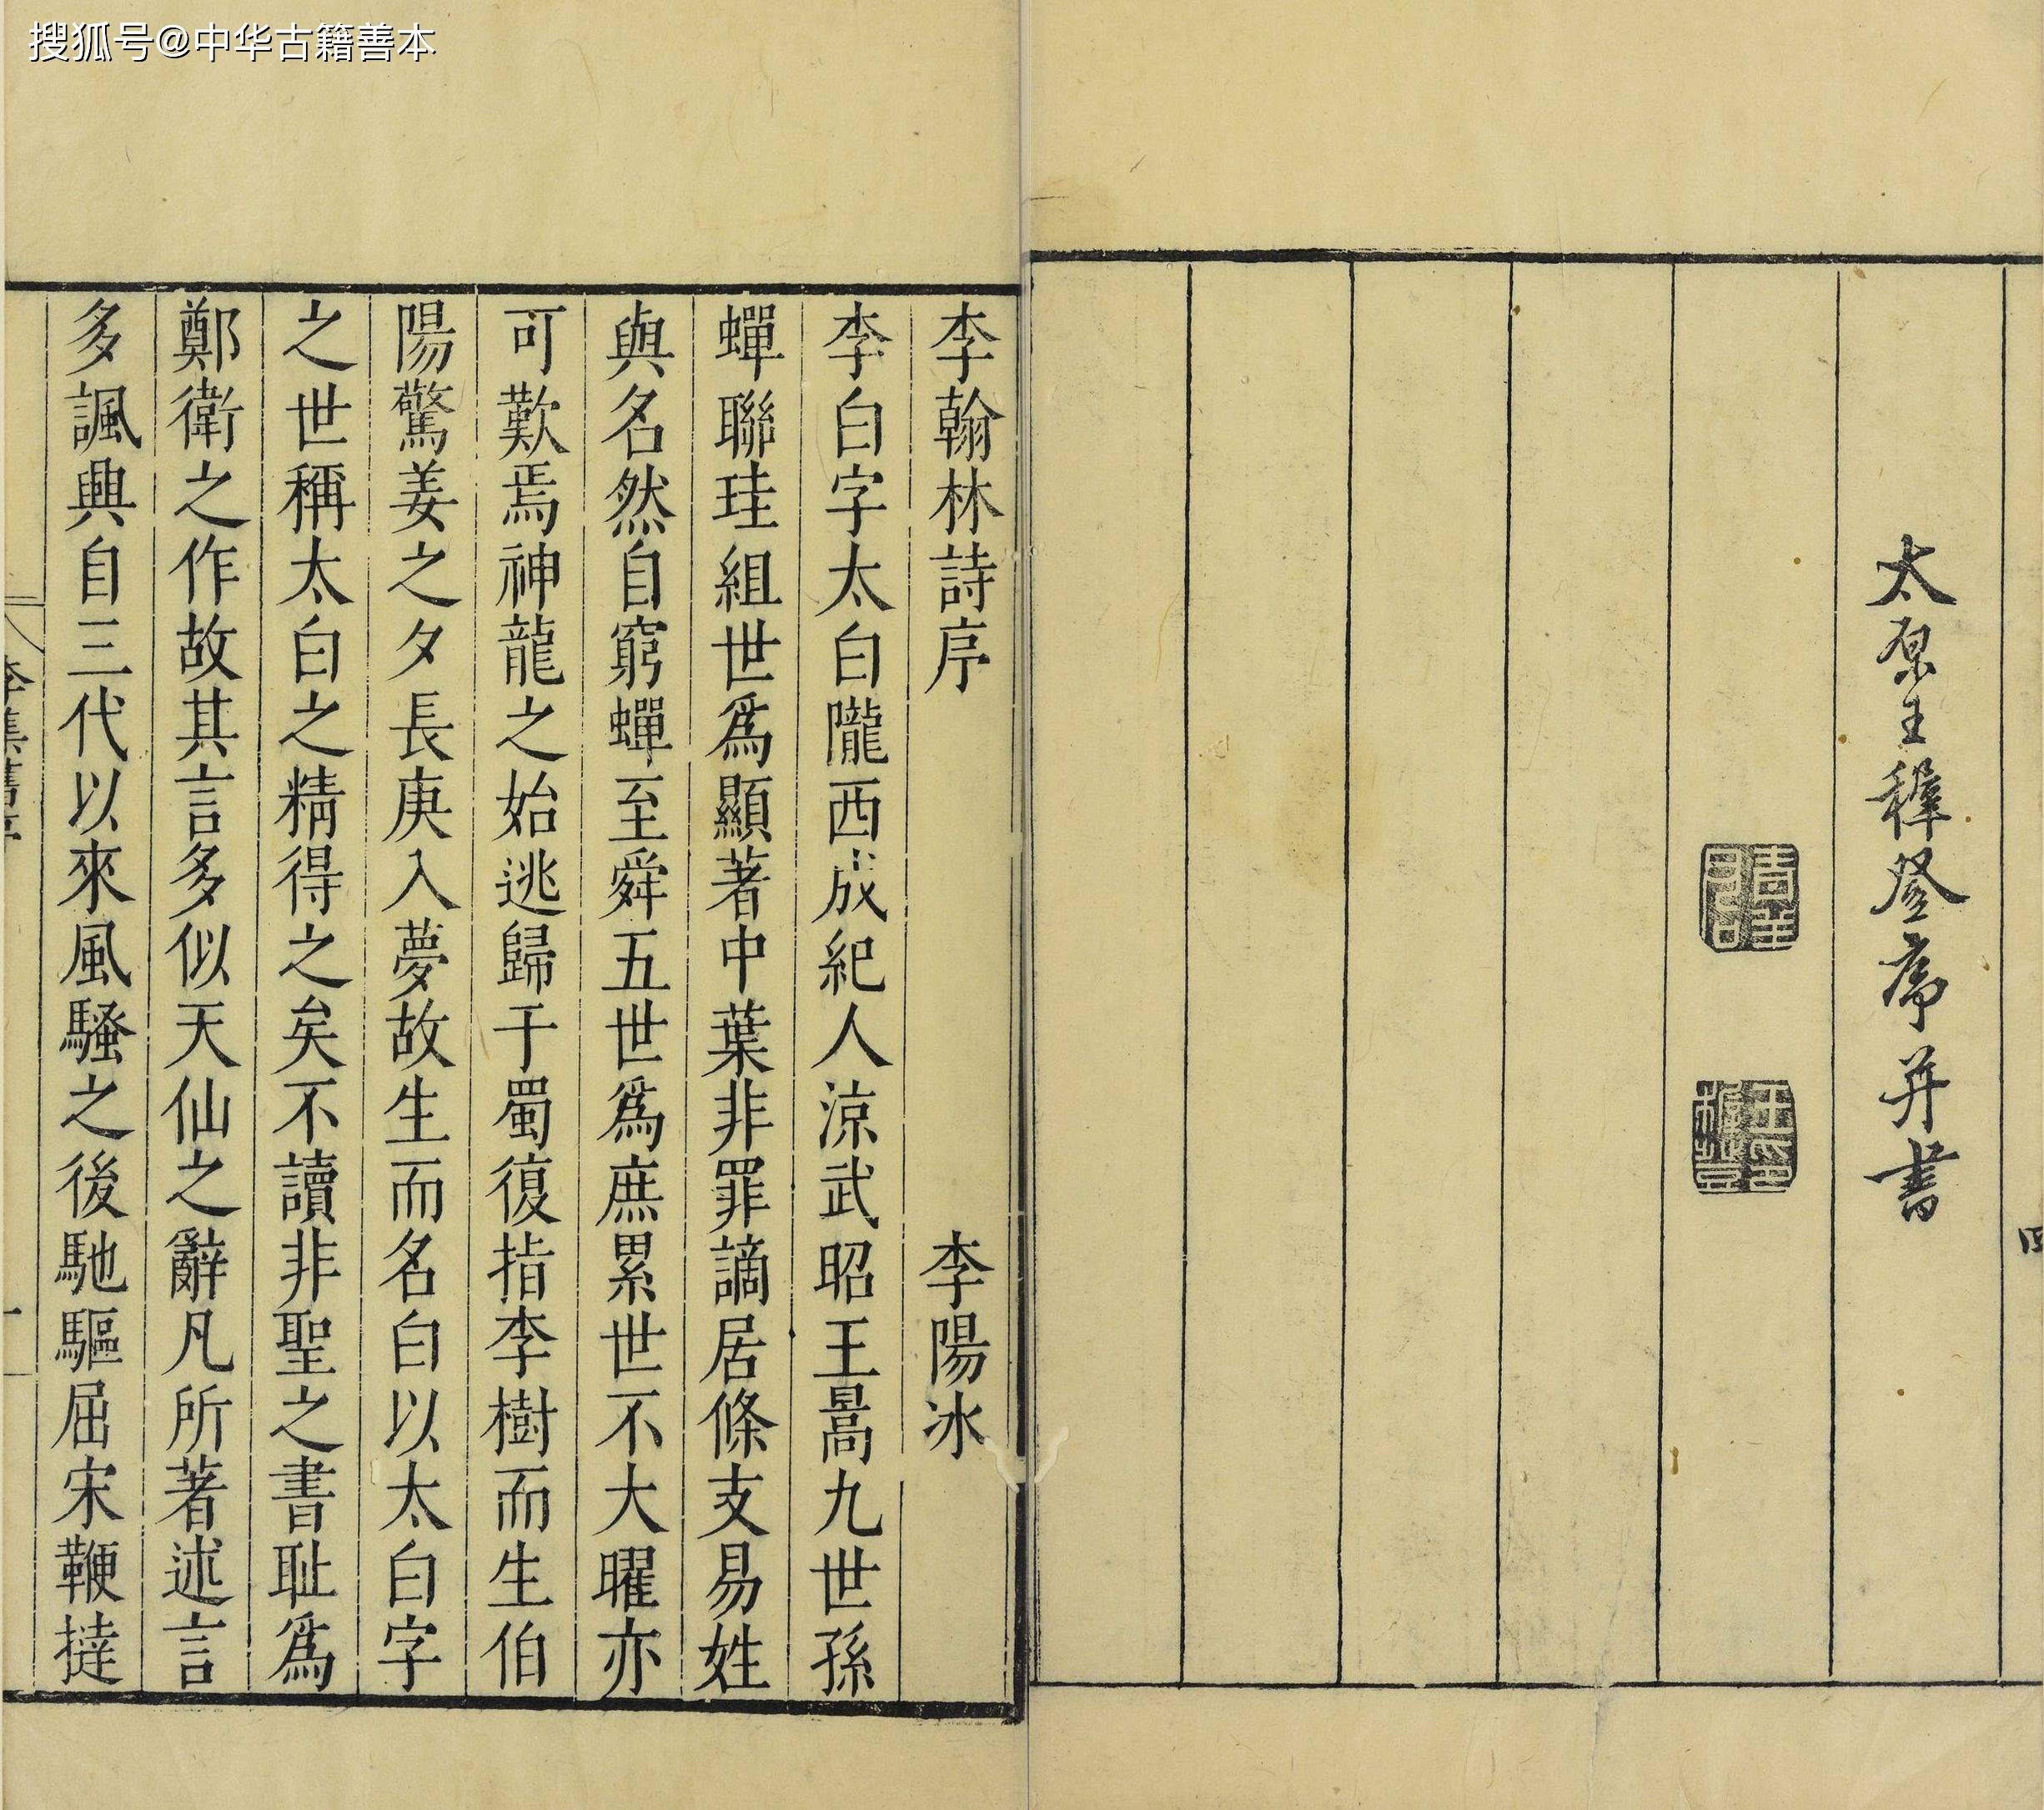 搜狐号@中华古籍善本
太原王穉登序并書
四
李翰林詩序 李陽冰
李白字太白隴西成紀人涼武昭王暠九世孫
蟬聯珪組世爲顯著中葉非罪謫居條支易姓
與名然自窮蟬至舜五世爲庶累世不大曜亦
可歎焉神龍之始逃歸于蜀復指李樹而生伯
陽驚姜之夕長庚入夢故生而名白以太白字
之世稱太白之精得之矣不讀非聖之書耻爲
鄭衛之作故其言多似天仙之辭凡所著述言
多諷興自三代以來風騷之後馳驅屈宋鞭撻
李集舊序
一